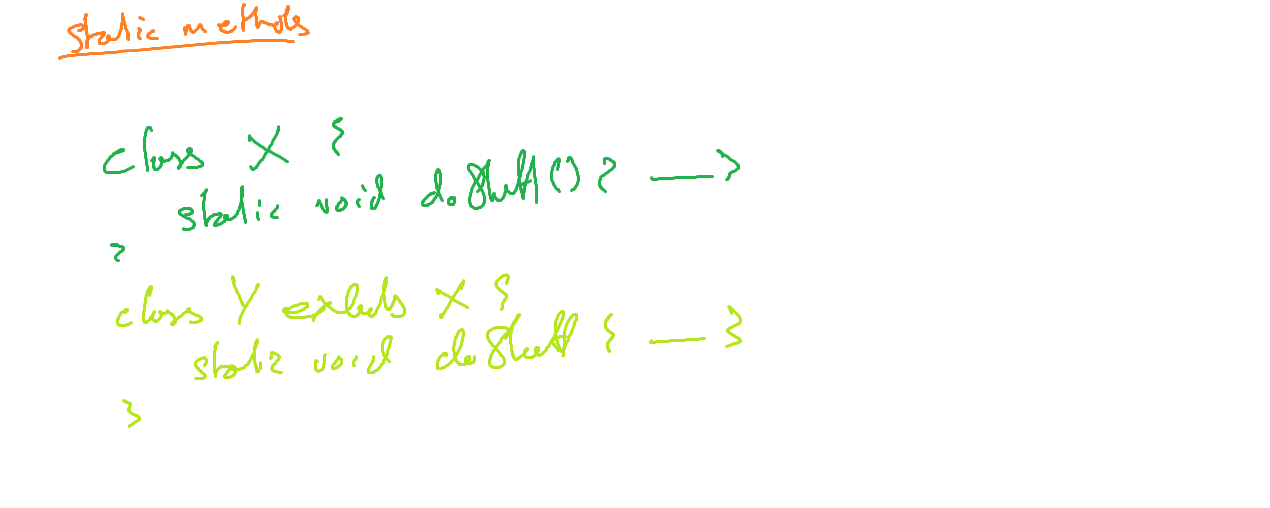 static methods
class X {
static void doStuff() { — }
}
class Y extends X {
static void doStuff { — }
}